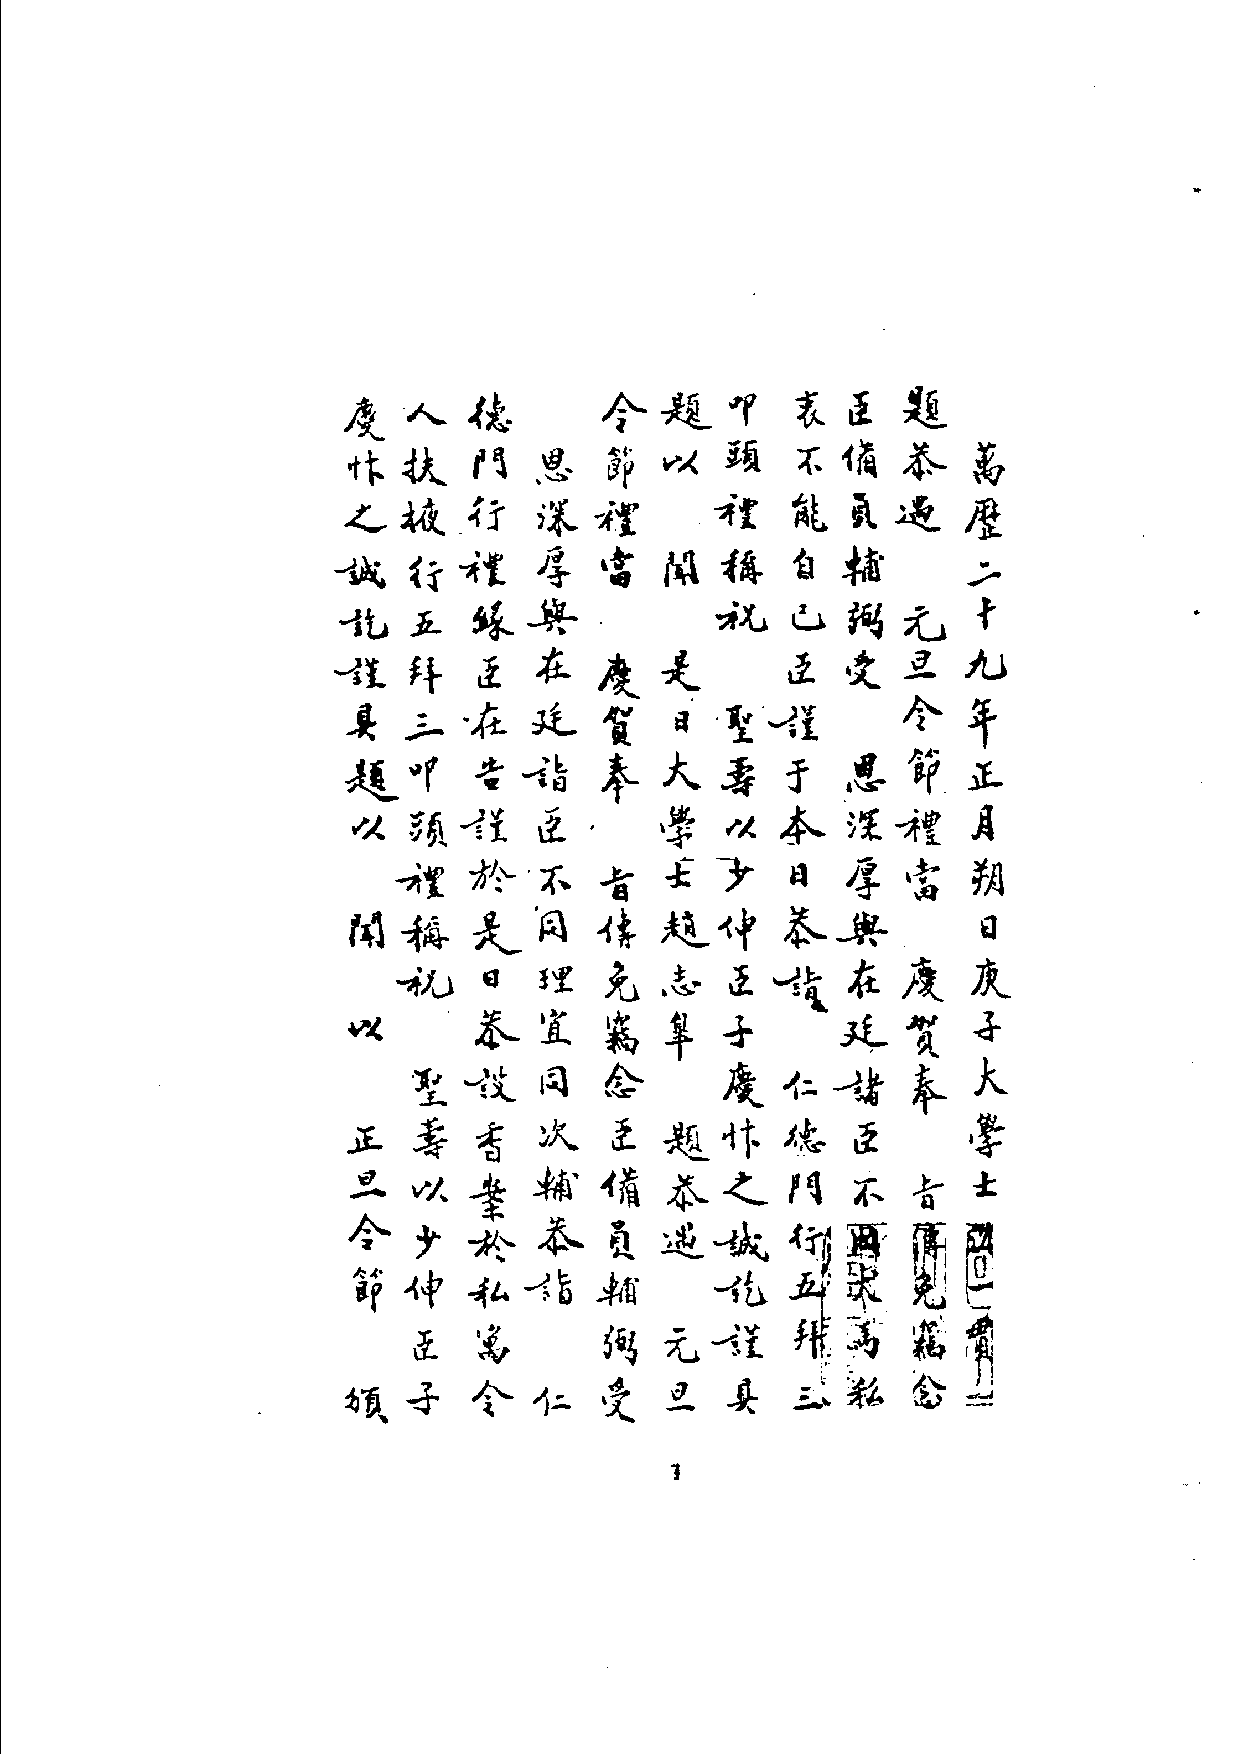 萬歷二十九年正月朔日庚子大學士沈一貫
題恭遇　元旦令節禮當　慶賀奉　旨傳免竊念
臣備員輔弼受　恩深厚與在廷諸臣不同犬馬私
衷不能自已臣謹于本日恭詣　仁德門行五拜三
叩頭禮稱祝　聖壽以少伸臣子慶忭之誠訖謹具
題以　聞　是日大學士趙志皐　題恭遇　元旦
令節禮當　慶賀奉　旨傳免竊念臣備員輔弼受
恩深厚與在廷諸臣不同理宜同次輔恭詣　仁
德門行禮緣臣在告謹於是日恭設香案於私寓令
人扶掖行五拜三叩頭禮稱祝　聖壽以少伸臣子
慶忭之誠訖謹具題以　聞　以　正旦令節　頒